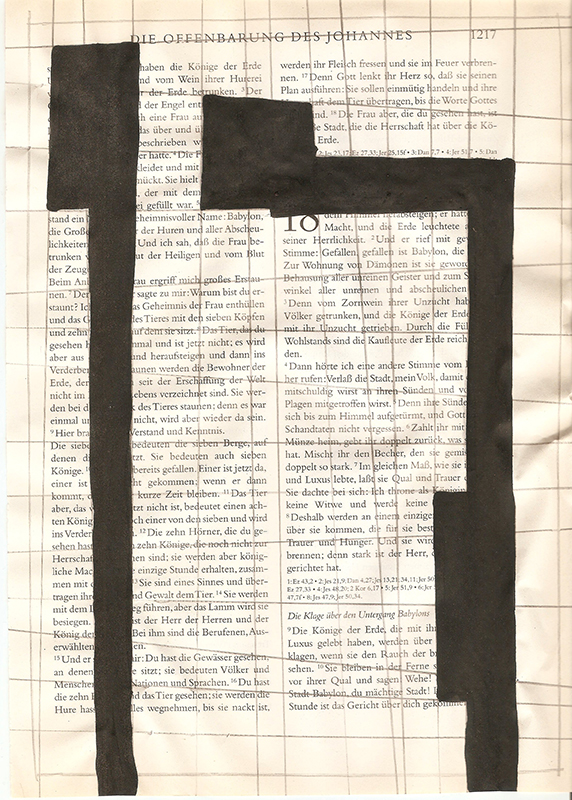 DIE OFFENBARUNG DES JOHANNES 1217
haben die Könige der Erde
nd vom Wein ihrer Hurerei
der Erde betrunken. ³Der
der Engel ent
ch eine Frau au
das über und ü
beschrieben w
er hatte. ⁴Die F
kleidet und mit
mückt. Sie hielt
der mit dem
ei gefüllt war. ⁵
stand ein heimnisvoller Name: Babylon,
die Große der Huren und aller Abscheu-
lichkeiten Und ich sah, daß die Frau be-
trunken v ut der Heiligen und vom Blut
der Zeug
Beim An rau ergriff mich großes Erstau-
nen. ⁷Der sagte zu mir: Warum bist du er-
staunt? Ic as Geheimnis der Frau enthüllen
und das G des Tieres mit den sieben Köpfen
und zehn auf dem sie sitzt. ⁸Das Tier, das du
gesehen h nmal und ist jetzt nicht; es wird
aber aus und heraufsteigen und dann ins
Verderber aunen werden die Bewohner der
Erde, der seit der Erschaffung der Welt
nicht im ebens verzeichnet sind. Sie wer-
den bei d k des Tieres staunen; denn es war
einmal u nicht, wird aber wieder da sein.
⁹Hier bra Verstand und Kenntnis.
Die siebe bedeuten die sieben Berge, auf
denen di tzt. Sie bedeuten auch sieben
Könige. ¹⁰ bereits gefallen. Einer ist jetzt da,
einer ist gekommen; wenn er dann
kommt, kurze Zeit bleiben. ¹¹Das Tier
aber, das tzt nicht ist, bedeutet einen ach-
ten König och einer von den sieben und wird
ins Verder ¹²Die zehn Hörner, die du ge-
sehen hast zehn Könige, die noch nicht zur
Herrschaft en sind; sie werden aber könig-
liche Mac einzige Stunde erhalten, zusam-
men mit ¹³Sie sind eines Sinnes und über-
tragen ihr Gewalt dem Tier. ¹⁴Sie werden
mit dem L g führen, aber das Lamm wird sie
besiegen. st der Herr der Herren und der
König der Bei ihm sind die Berufenen, Aus-
erwählten en.
¹⁵Und er ir: Du hast die Gewässer gesehen,
an denen e sitzt; sie bedeuten Völker und
Mensche Nationen und Sprachen. ¹⁶Du hast
die zehn d das Tier gesehen; sie werden die
Hure has lles wegnehmen, bis sie nackt ist,
werden ihr Fleisch fressen und sie im Feuer verbren-
nen. ¹⁷Denn Gott lenkt ihr Herz so, daß sie seinen
Plan ausführen: Sie sollen einmütig handeln und ihre
haft dem Tier übertragen, bis die Worte Gottes
ind. ¹⁸Die Frau aber, die du gesehen hast, ist
Stadt, die die Herrschaft hat über die Kö-
Erde.
2: Jes 23,17; Ez 27,33; Jer 25,15f • 3: Dan 7,7 • 4: Jer 51,7 • 5: Dan
18 dem Himmel herabsteigen; er hatte
Macht, und die Erde leuchtete a
seiner Herrlichkeit. ²Und er rief mit ge
Stimme: Gefallen, gefallen ist Babylon, die
Zur Wohnung von Dämonen ist sie geword
Behausung aller unreinen Geister und zum S
winkel aller unreinen und abscheulichen
³Denn vom Zornwein ihrer Unzucht hab
Völker getrunken, und die Könige der Erde
mit ihr Unzucht getrieben. Durch die Fü
Wohlstands sind die Kaufleute der Erde reich
den.
⁴Dann hörte ich eine andere Stimme vom
her rufen: Verlaß die Stadt, mein Volk, damit
mitschuldig wirst an ihren Sünden und vo
Plagen mitgetroffen wirst. ⁵Denn ihre Sünde
sich bis zum Himmel aufgetürmt, und Gott
Schandtaten nicht vergessen. ⁶Zahlt ihr mit
Münze heim, gebt ihr doppelt zurück, was
hat. Mischt ihr den Becher, den sie gemis
doppelt so stark. ⁷Im gleichen Maß, wie sie
und Luxus lebte, laßt sie Qual und Trauer
Sie dachte bei sich: Ich throne als Königin
keine Witwe und werde keine
⁸Deshalb werden an einem einzige
über sie kommen, die für sie best
Trauer und Hunger. Und sie wir
brennen; denn stark ist der Herr,
gerichtet hat.
1: Ez 43,2 • 2: Jes 21,9; Dan 4,27; Jes 13,21; 34,11; Jer 50
Ez 27,33 • 4: Jes 48,20; 2 Kor 6,17 • 5: Jer 51,9 • 6: Jer
47,7f • 8: Jes 47,9; Jer 50,34.
Die Klage über den Untergang Babylons
⁹Die Könige der Erde, die mit ih
Luxus gelebt haben, werden über
klagen, wenn sie den Rauch der b
sehen. ¹⁰Sie bleiben in der Ferne s
vor ihrer Qual und sagen: Wehe!
Stadt Babylon, du mächtige Stadt!
Stunde ist das Gericht über dich gekomm